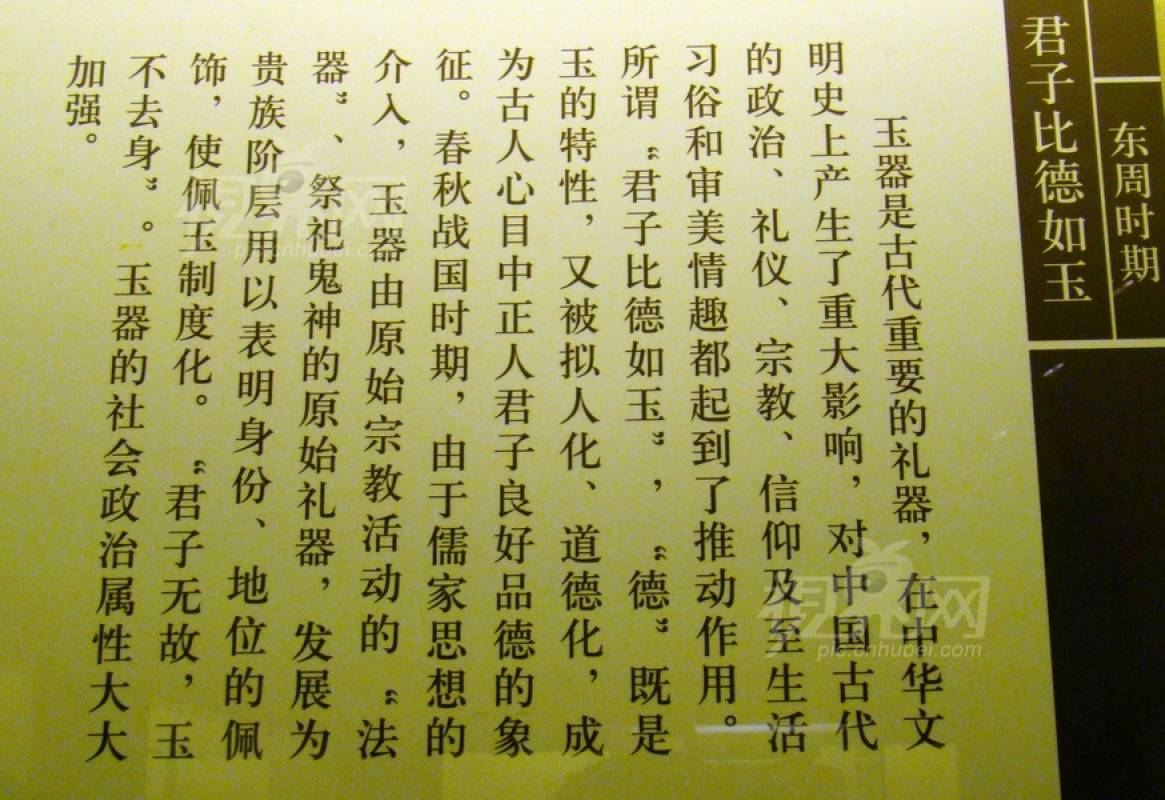 东周时期
君子比德如玉
玉器是古代重要的礼器，在中华文
明史上产生了重大影响，对中国古代
的政治、礼仪、宗教、信仰及至生活
习俗和审美情趣都起到了推动作用。
所谓“君子比德如玉”，“德”既是
玉的特性，又被拟人化、道德化，成
为古人心目中正人君子良好品德的象
征。春秋战国时期，由于儒家思想的
介入，玉器由原始宗教活动的“法
器”、祭祀鬼神的原始礼器，发展为
贵族阶层用以表明身份、地位的佩
饰，使佩玉制度化。“君子无故，玉
不去身”。玉器的社会政治属性大大
加强。
pic.cnhubei.com
pic.cnhubei.com